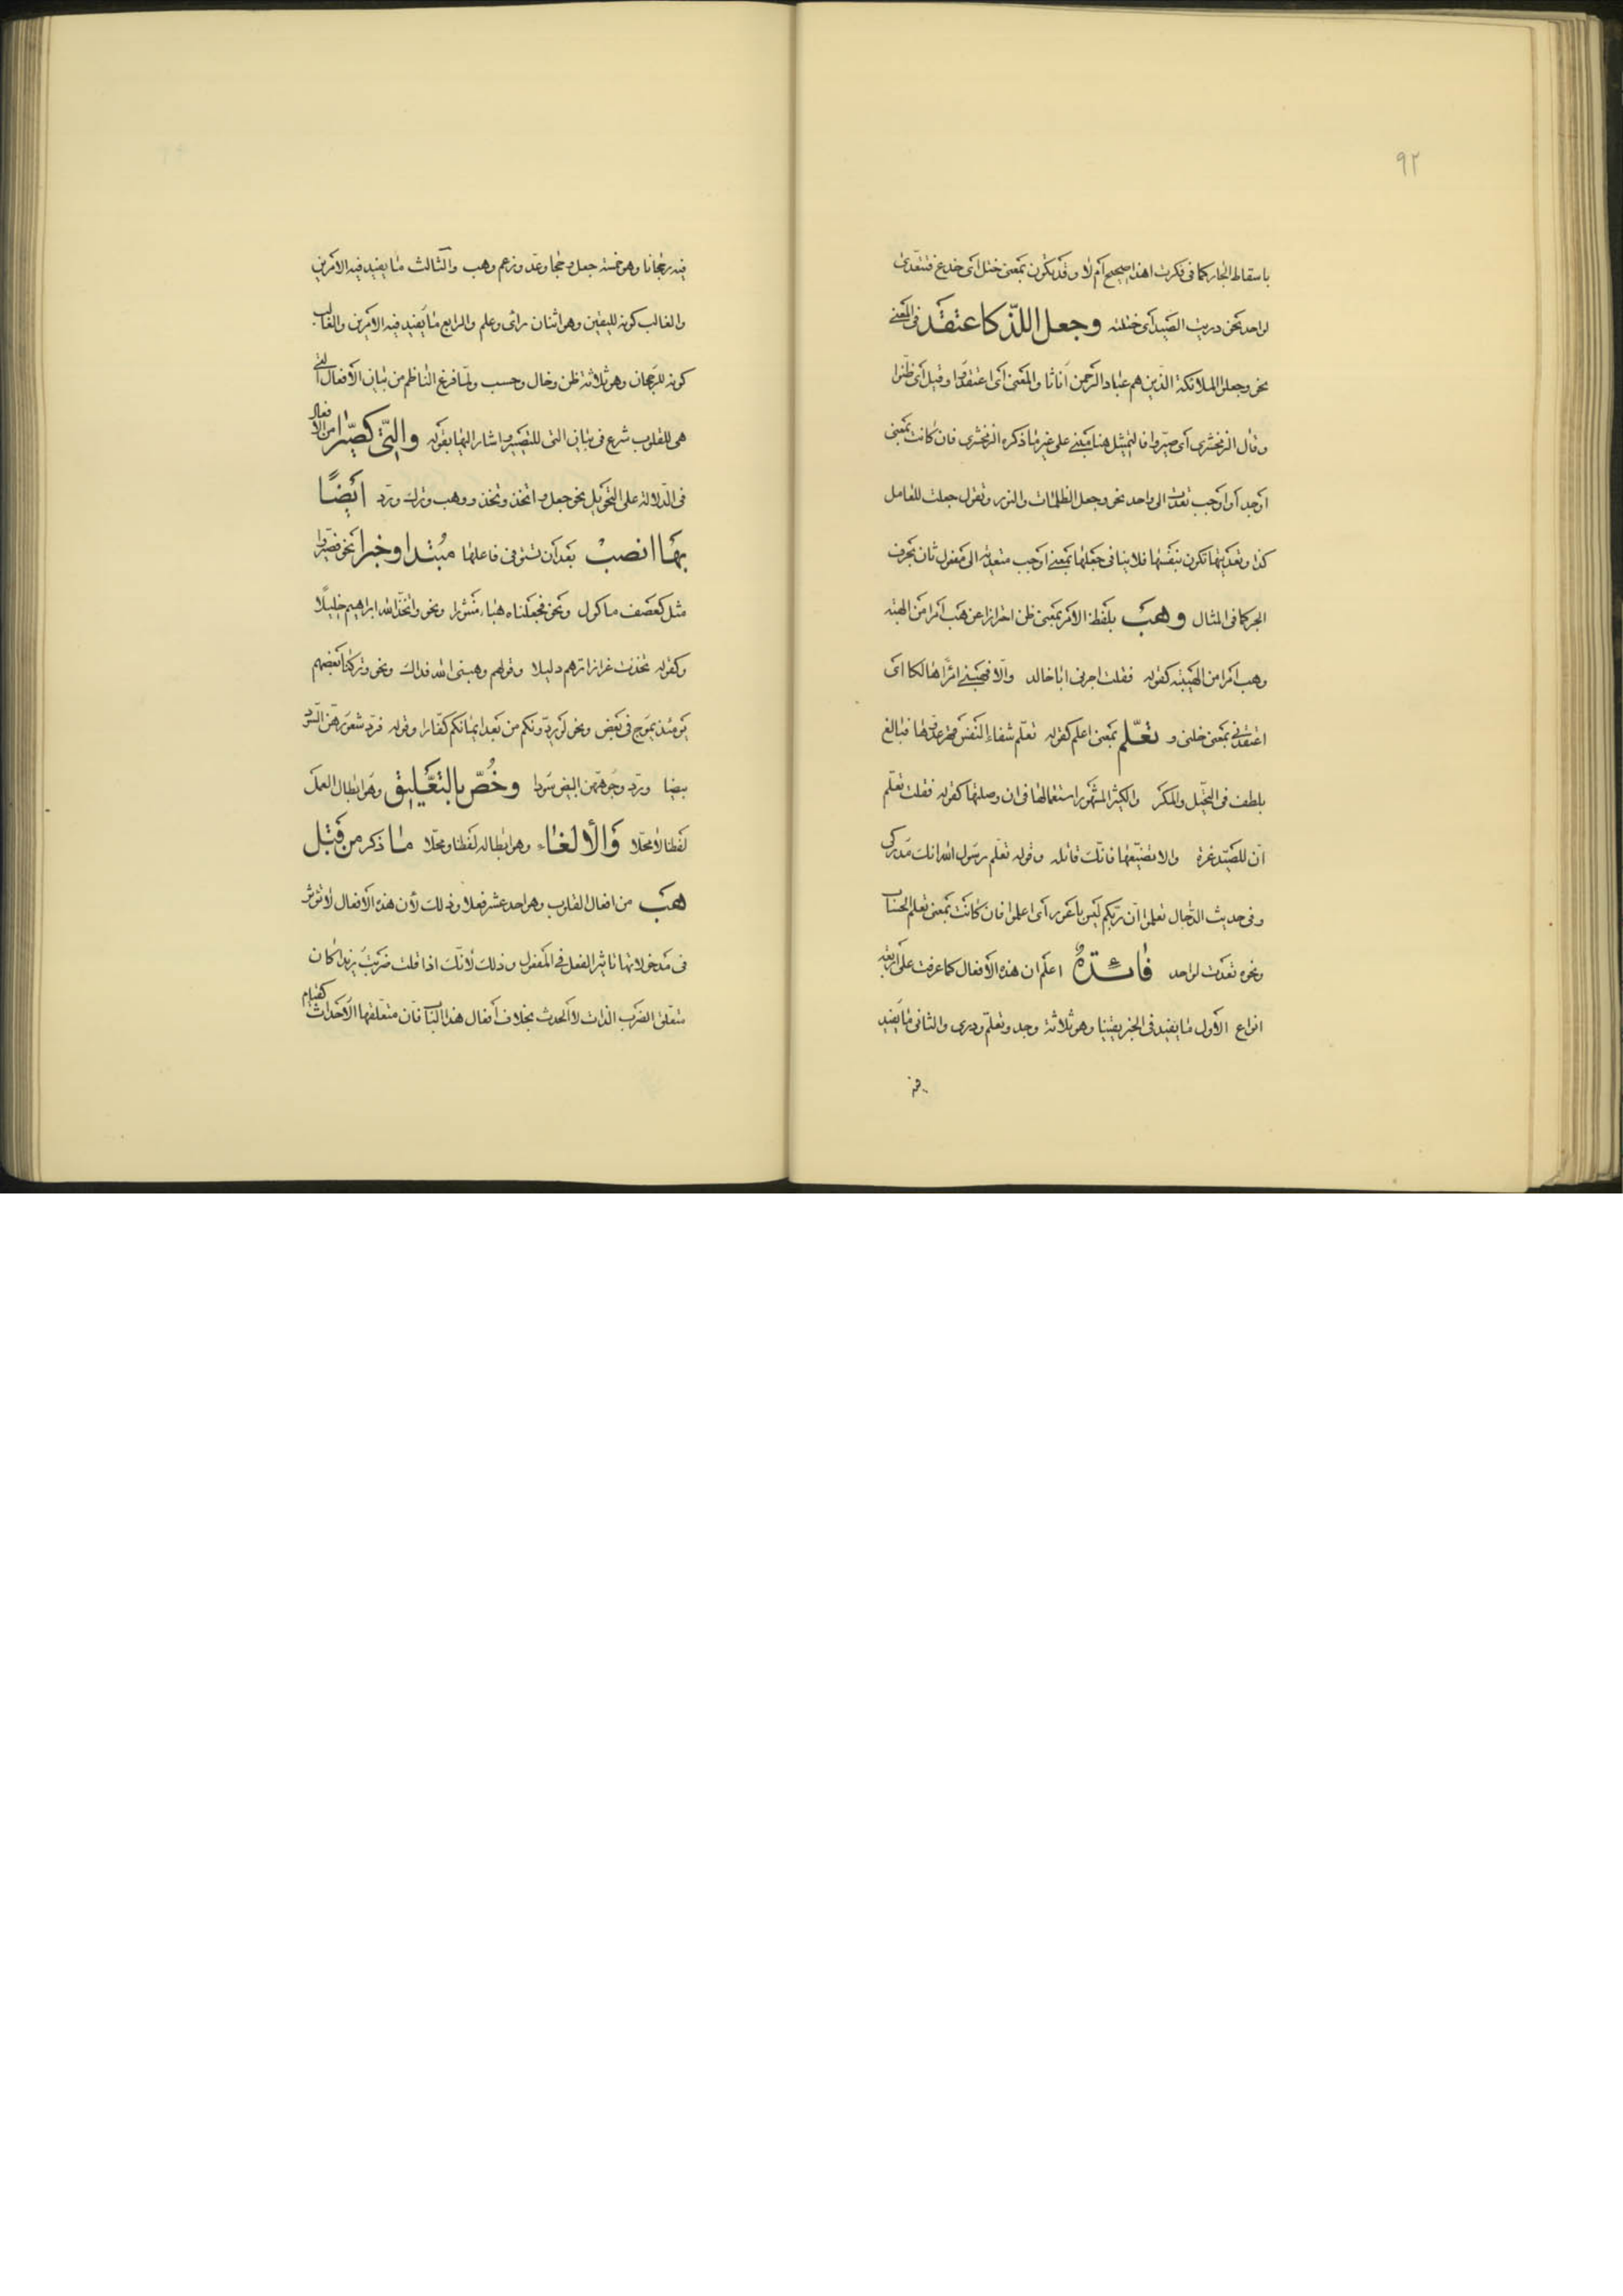 ٩٢
باسقاط الجار كما فى فكرت اهذا صحيح أم لا وقد يكون بمعنى ختل أى خدع فتتعدى
لواحد نحو دريت الصيد أى ختلته وجعل اللذ كاعتقد فى المعنى
نحو وجعلوا الملائكة الذين هم عباد الرحمن أناثا والمعنى أى اعتقدوا وقيل أى ظنوا
وقال الزمخشرى أى صيروا فالتمثيل هنا مبنى على غير ما ذكره الزمخشرى فان كانت بمعنى
اوجد أو اوجب تعدت الى واحد نحو وجعل الظلمات والنور وتقول جعلت للعامل
كذا وتعديتها تكون بنفسها فلا ينافى جعلها بمعنى اوجب متعدية الى مفعول ثان بحرف
الجر كما فى المثال وهب بلفظ الأمر بمعنى ظن احترازا عن هب أمرا من الهبة
وهب أمرا من الهيبة كقوله فقلت اجرنى ابا خالد والا فهبنى امرًا هالكا اى
اعتقدنى بمعنى خلنى و تعلّم بمعنى اعلم كقوله تعلم شفاء النفس قهر عدوها فبالغ
بلطف فى التحيل والمكر والكثير المشهور استعمالها فى ان وصلتها كقوله فقلت تعلم
أن للصيد غرة والا تضيعها فانك قاتله وقوله تعلم رسول الله انك مدركى
وفى حديث الدجال تعلموا أن ربكم ليس بأعور أى اعلموا فان كانت بمعنى تعلم الحساب
ونحوه تعدت لواحد فائدة اعلم ان هذه الأفعال كما عرفت على اربعة
انواع الأول ما يفيد فى الخبر يقينا وهو ثلاثة وجد وتعلم ودرى والثانى ما يفيد
فيه
فيه رجحانا وهو خمسة جعل وحجا وعد وزعم وهب والثالث ما يفيد فيه الأمرين
والغالب كونه لليقين وهو اثنان رأى وعلم والرابع ما يفيد فيه الأمرين والغالب
كونه للرجحان وهو ثلاثة ظن وخال وحسب ولما فرغ الناظم من بيان الأفعال التى
هى للقلوب شرع فى بيان التى للتصيير واشار اليها بقوله والتى كصيّرا من الأفعال
فى الدلالة على التحويل نحو جعل واتخذ وتخذ ووهب وترك ورد ايضًا
بها انصب بعد أن تستوفى فاعلها مبتدا وخبرا نحو فصيروا
مثل كعصف ماكول ونحو فجعلناه هباء منثورا ونحو واتخذ الله ابراهيم خليلًا
وكقوله تخذت غراز اثرهم دليلا وقولهم وهبنى الله فداك ونحو وتركنا بعضهم
يومئذ يموج فى بعض ونحو لو يردونكم من بعد ايمانكم كفارا وقوله فرد شعورهن السود
بيضا ورد وجوههن البيض سودا وخُصّ بالتعليق وهو ابطال العمل
لفظا لا محلا والألغاء وهو ابطاله لفظا ومحلا ما ذكر من قبل
هب من افعال القلوب وهو احد عشر فعلا وذلك لأن هذه الأفعال لا تؤثر
فى مدخولاتها تاثير الفعل فى المفعول وذلك لأنك اذا قلت ضربت زيدا كان
متعلق الضرب الذات لا الحدث بخلاف أفعال هذا الباب فان متعلقها الأحداث كقيام